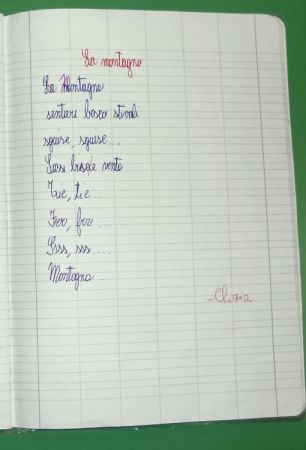 La montagna
La Montagna
sentieri bosco stivali
squise, squise...
Sassi brezze vento
Tic, tic....
Frr, frr....
Ssss, sss....
Montagna..